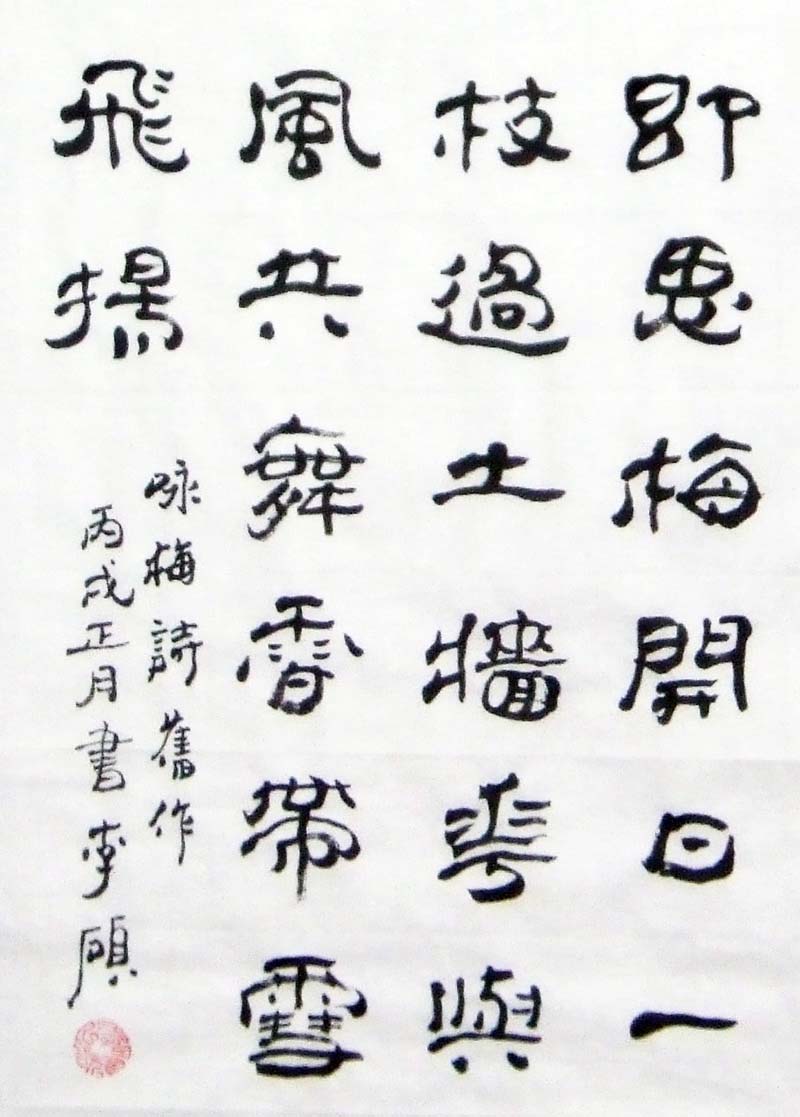 即思梅開日一
枝過土牆花與
風共舞香帶雪
飛揚
咏梅詩舊作
丙戌正月書李碩